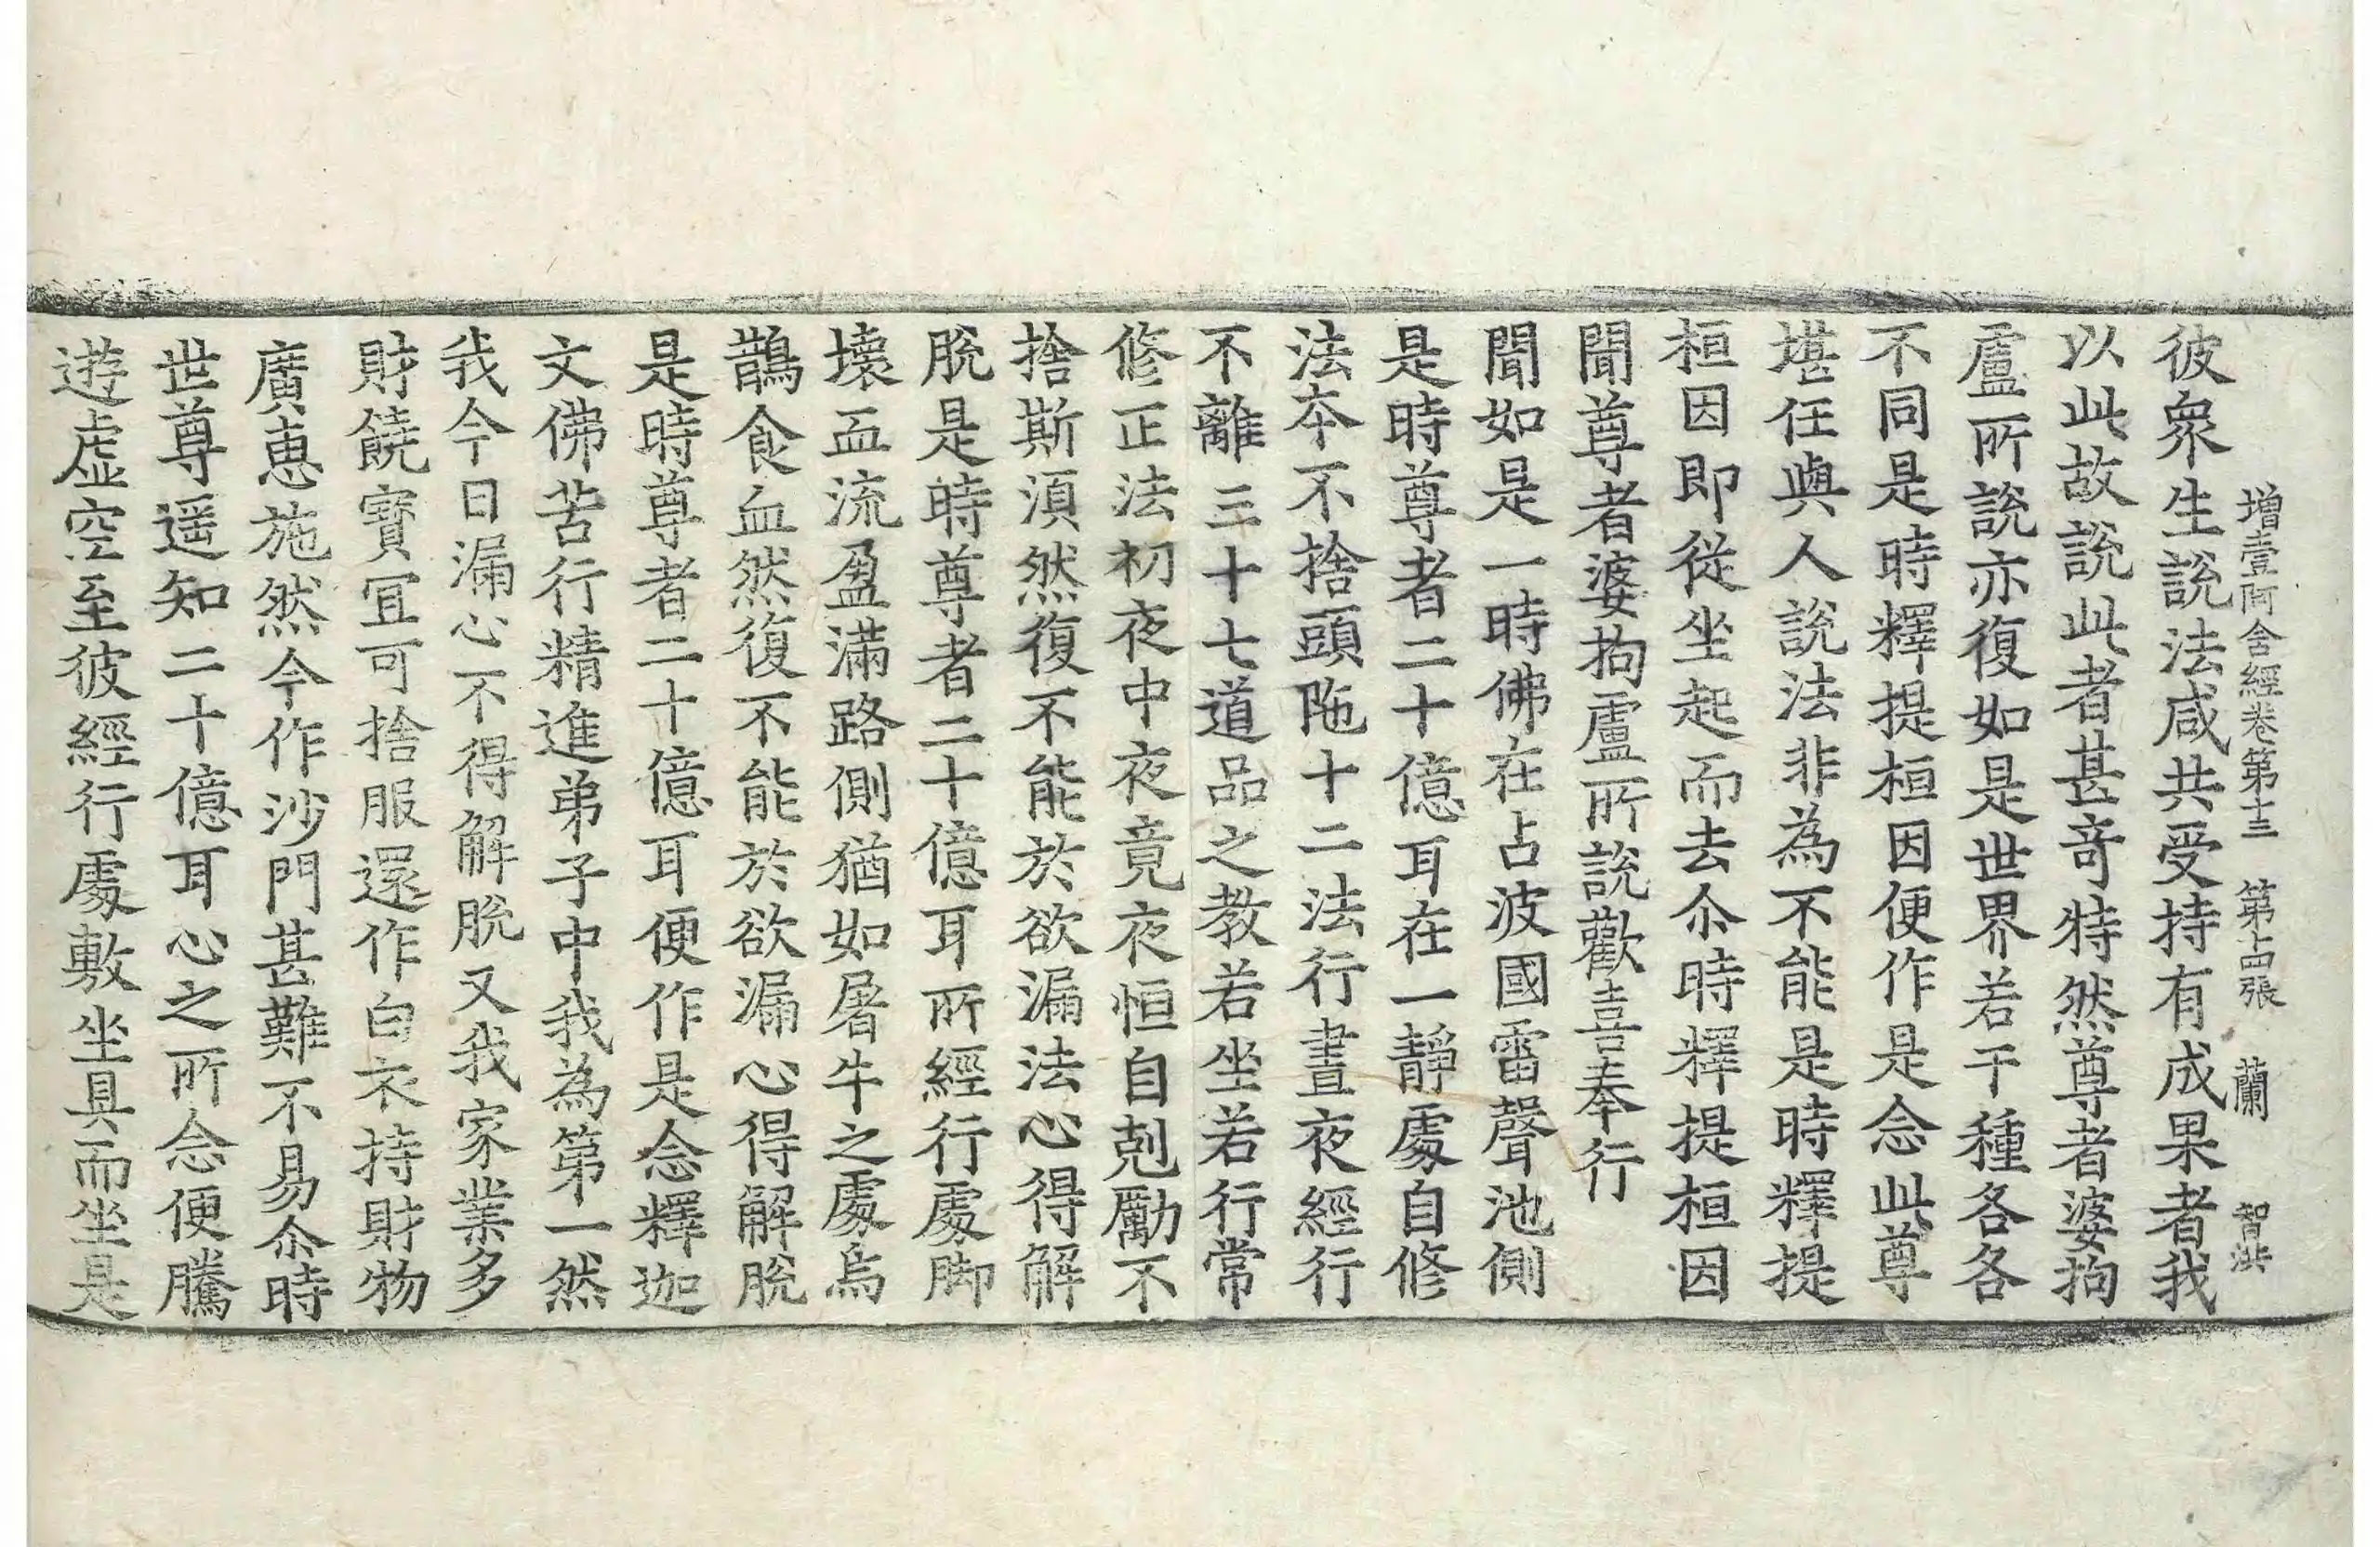 增壹阿含經卷第十三 第十四張 蘭 智洪
彼衆生說法咸共受持有成果者我
以此故說此者甚奇特然尊者婆拘
盧所說亦復如是世界若干種各各
不同是時釋提桓因便作是念此尊
堪任與人說法非為不能是時釋提
桓因即從坐起而去尒時釋提桓因
聞尊者婆拘盧所說歡喜奉行
聞如是一時佛在占波國雷聲池側
是時尊者二十億耳在一靜處自修
法本不捨頭陁十二法行晝夜經行
不離三十七道品之教若坐若行常
修正法初夜中夜竟夜恒自剋勵不
捨斯湏然復不能於欲漏法心得解
脫是時尊者二十億耳所經行處脚
壞血流盈滿路側猶如屠牛之處烏
鵲食血然復不能於欲漏心得解脫
是時尊者二十億耳便作是念釋迦
文佛苦行精進弟子中我為第一然
我今日漏心不得解脫又我家業多
財饒寶冝可捨服還作白衣持財物
廣惠施然今作沙門甚難不易尒時
世尊遥知二十億耳心之所念便騰
遊虛空至彼經行處敷坐具而坐是